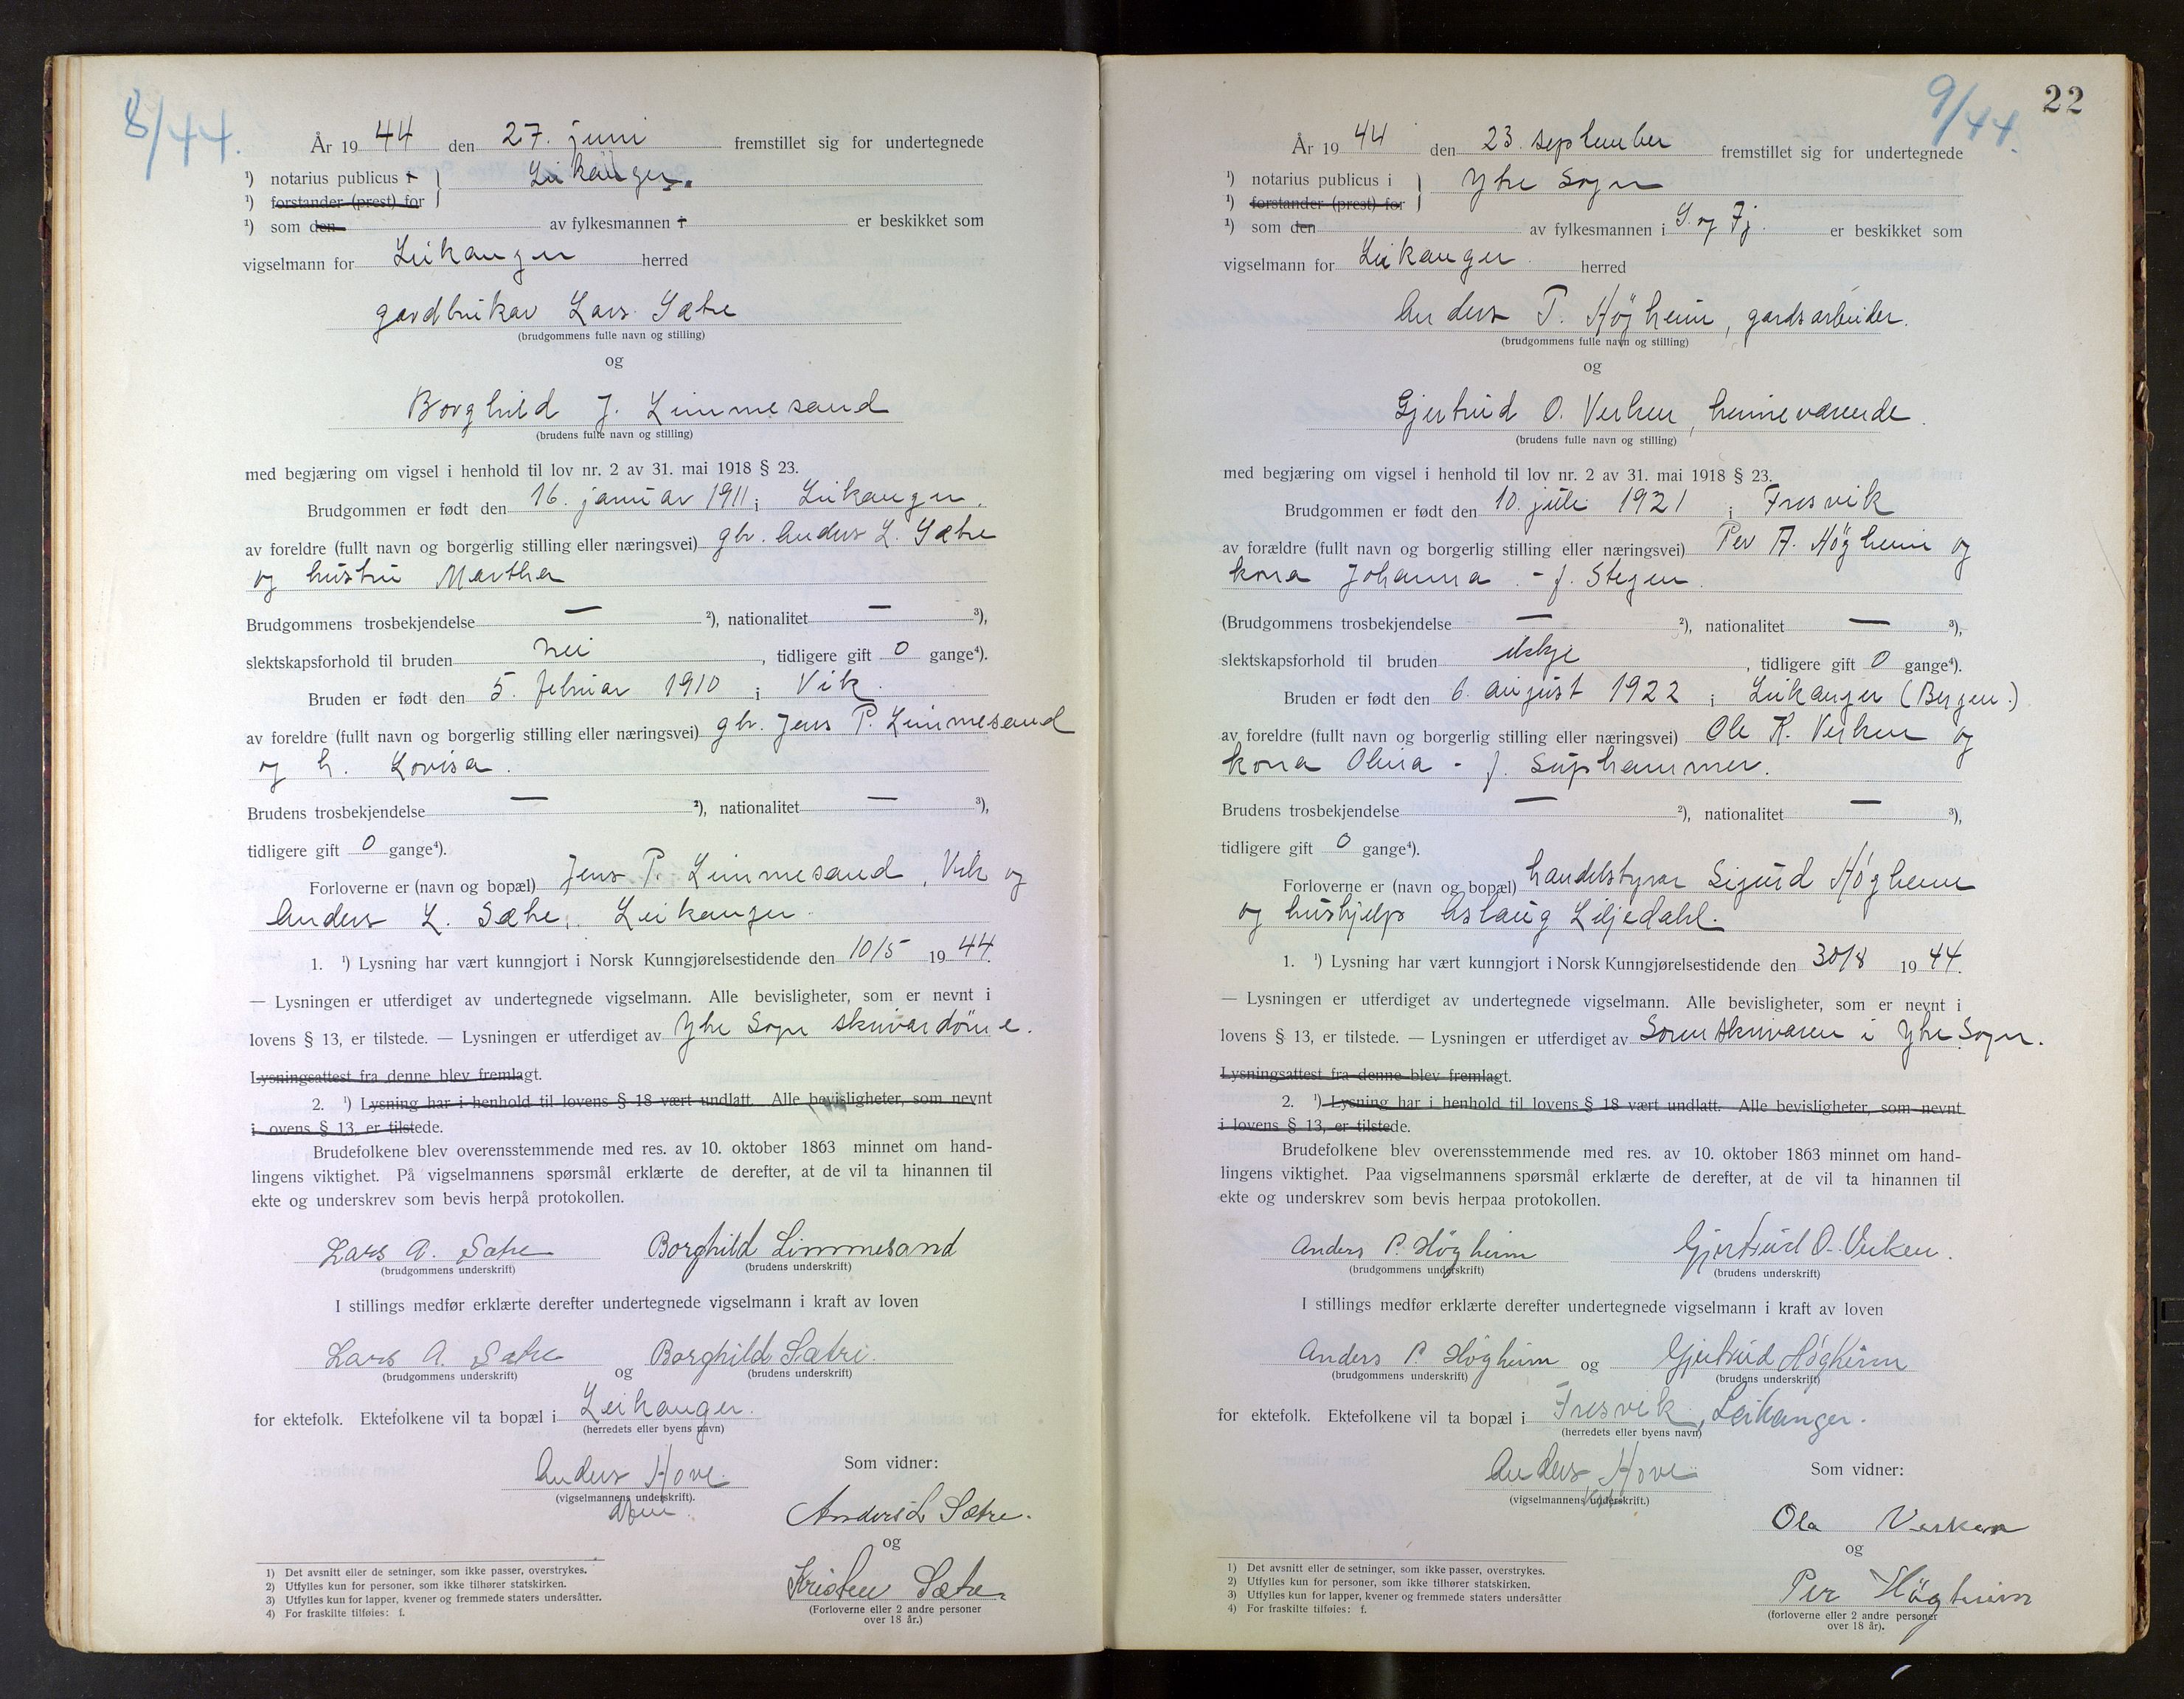 8/44.
År 19 44 den 27. juni fremstillet sig for undertegnede
¹) notarius publicus i Leikanger.
¹) forstander (prest) for
¹) som den av fylkesmannen i er beskikket som
vigselmann for Leikanger herred
gardbrukar Lars Sætre
(brudgommens fulle navn og stilling)
og
Borghild J. Limmesand
(brudens fulle navn og stilling)
med begjæring om vigsel i henhold til lov nr. 2 av 31. mai 1918 § 23.
Brudgommen er født den 16. januar 1911 i Leikanger.
av foreldre (fullt navn og borgerlig stilling eller næringsvei) gbr. Anders L. Sætre
og hustru Martha
Brudgommens trosbekjendelse — ²), nationalitet — ³),
slektskapsforhold til bruden nei, tidligere gift 0 gange⁴).
Bruden er født den 5. februar 1910 i Vik.
av foreldre (fullt navn og borgerlig stilling eller næringsvei) gbr. Jens P. Limmesand
og h. Lovisa.
Brudens trosbekjendelse — ²), nationalitet — ³),
tidligere gift 0 gange⁴).
Forloverne er (navn og bopæl) Jens P. Limmesand, Vik og
Anders L. Sætre, Leikanger.
1. ¹) Lysning har vært kunngjort i Norsk Kunngjørelsestidende den 10/5 19 44.
— Lysningen er utferdiget av undertegnede vigselmann. Alle bevisligheter, som er nevnt i
lovens § 13, er tilstede. — Lysningen er utferdiget av Ytre Sogn skrivardøme.
Lysningsattest fra denne blev fremlagt.
2. ¹) Lysning har i henhold til lovens § 18 vært undlatt. Alle bevisligheter, som nevnt
i ovens § 13, er tilstede.
Brudefolkene blev overensstemmende med res. av 10. oktober 1863 minnet om hand-
lingens viktighet. På vigselmannens spørsmål erklærte de derefter, at de vil ta hinannen til
ekte og underskrev som bevis herpå protokollen.
Lars A. Sætre Borghild Limmesand
(brudgommens underskrift) (brudens underskrift)
I stillings medfør erklærte derefter undertegnede vigselmann i kraft av loven
Lars A. Sætre og Borghild Sætre.
(brudgommens underskrift) (brudens underskrift)
for ektefolk. Ektefolkene vil ta bopæl i Leikanger.
(herredets eller byens navn)
Anders Hove
(vigselmannens underskrift).
Som vidner:
Anders L Sætre.
og
Kristen Sætre
(Forloverne eller 2 andre personer
over 18 år.)
1) Det avsnitt eller de setninger, som ikke passer, overstrykes.
2) Utfylles kun for personer, som ikke tilhører statskirken.
3) Utfylles kun for lapper, kvener og fremmede staters undersåtter.
4) For fraskilte tilføies: f.
9/44.
22
År 19 44 den 23. september fremstillet sig for undertegnede
¹) notarius publicus i Ytre Sogn
¹) forstander (prest) for
¹) som den av fylkesmannen i S. og Fj. er beskikket som
vigselmann for Leikanger herred
Anders P. Högheim, gardsarbeider.
(brudgommens fulle navn og stilling)
og
Gjertrud O. Verken, heimeværende.
(brudens fulle navn og stilling)
med begjæring om vigsel i henhold til lov nr. 2 av 31. mai 1918 § 23.
Brudgommen er født den 10. juli 1921 i Fresvik
av forældre (fullt navn og borgerlig stilling eller næringsvei) Per A. Högheim og
kona Johanna - f. Stegen.
(Brudgommens trosbekjendelse — ²), nationalitet — ³),
slektskapsforhold til bruden ikkje, tidligere gift 0 gange⁴).
Bruden er født den 6. august 1922 i Leikanger (Bergen.)
av foreldre (fullt navn og borgerlig stilling eller næringsvei) Ole K. Verken og
kona Olina - f. Suphammer.
Brudens trosbekjendelse — ²), nationalitet — ³),
tidligere gift 0 gange⁴).
Forloverne er (navn og bopæl) handelstyrar Sigurd Högheim
og hushjelp Aslaug Liljedahl.
1. ¹) Lysning har vært kunngjort i Norsk Kunngjørelsestidende den 30/8 19 44.
— Lysningen er utferdiget av undertegnede vigselmann. Alle bevisligheter, som er nevnt i
lovens § 13, er tilstede. — Lysningen er utferdiget av Sorenskrivaren i Ytre Sogn.
Lysningsattest fra denne blev fremlagt.
2. ¹) Lysning har i henhold til lovens § 18 vært undlatt. Alle bevisligheter, som nevnt
i lovens § 13, er tilstede.
Brudefolkene blev overensstemmende med res. av 10. oktober 1863 minnet om hand-
lingens viktighet. Paa vigselmannens spørsmål erklærte de derefter, at de vil ta hinannen til
ekte og underskrev som bevis herpaa protokollen.
Anders P. Högheim Gjertrud O. Verken.
(brudgommens underskrift) (brudens underskrift)
I stillings medfør erklærte derefter undertegnede vigselmann i kraft av loven
Anders P. Högheim og Gjertrud Högheim
(brudgommens underskrift) (brudens underskrift)
for ektefolk. Ektefolkene vil ta bopæl i Fresvik, Leikanger.
(herredets eller byens navn)
Anders Hove
(vigselmannens underskrift.)
Som vidner:
Ola Verken
og
Per Högheim
(forloverne eller 2 andre personer
over 18 år).
1) Det avsnitt eller de setninger, som ikke passer, overstrykes.
2) Utfylles kun for personer, som ikke tilhører statskirken.
3) Utfylles kun for lapper, kvener og fremmede staters undersåtter
4) For fraskilte tilføies: f.